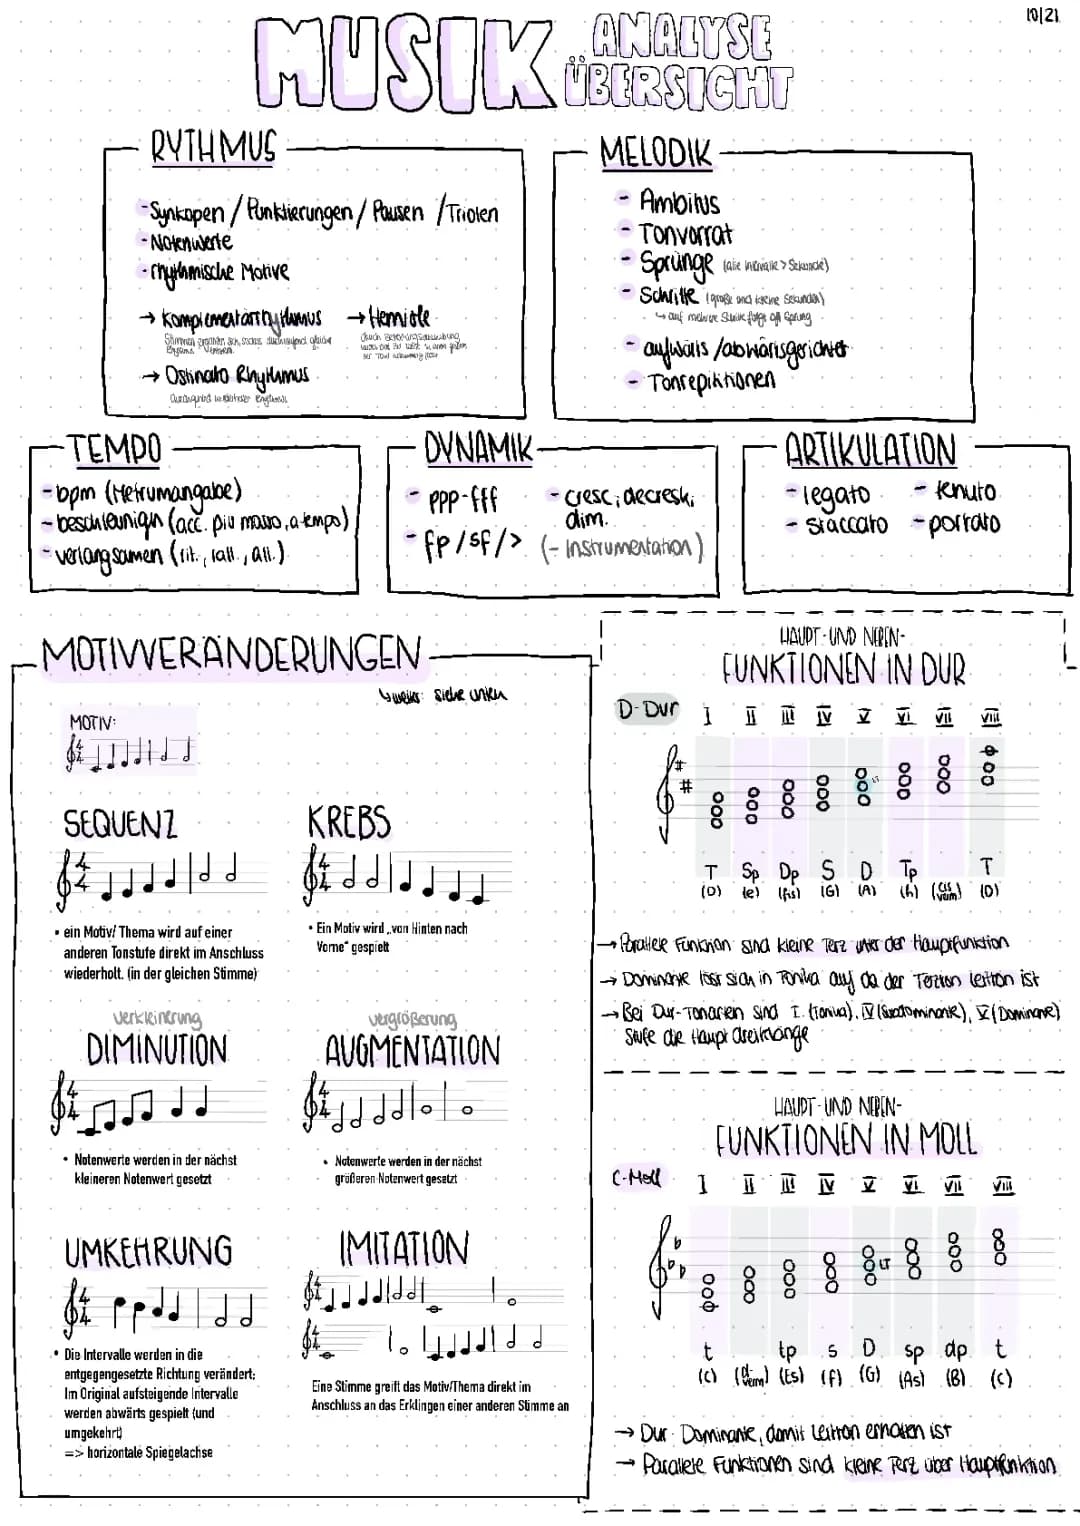 10/21
MUSIK ANALYSE
ÜBERSICHT
RYTHMUS
- Synkopen / Punktierungen / Pausen / Triolen
- Notenwerte
- rhythmische Motive
→ Komplementärrhythmus → Hemiole
→ Ostinato Rhythmus
MELODIK
- Ambitus
- Tonvorrat
- Sprünge (alle Intervalle > Sekunde)
- Schritte (große und kleine Sekunden)
↳ auf mehrere Schritte folgt oft Sprung
- aufwärts / abwärtsgerichtet
- Tonrepititionen
TEMPO
- bpm (Metrumangabe)
- beschleunign (acc. piu mosso, a tempo)
- verlangsamen (rit., rall., all.)
DYNAMIK
- ppp-fff
- fp/sf/>
- cresc; decresk;
dim.
(- Instrumentation)
ARTIKULATION
- legato - tenuto
- staccato - portato
MOTIVVERÄNDERUNGEN
↳ weiter: siehe unten
MOTIV:
SEQUENZ
• ein Motiv/ Thema wird auf einer
anderen Tonstufe direkt im Anschluss
wiederholt. (in der gleichen Stimme)
KREBS
• Ein Motiv wird „von Hinten nach
Vorne“ gespielt
verkleinerung
DIMINUTION
• Notenwerte werden in der nächst
kleineren Notenwert gesetzt
vergrößerung
AUGMENTATION
• Notenwerte werden in der nächst
größeren Notenwert gesetzt
UMKEHRUNG
• Die Intervalle werden in die
entgegengesetzte Richtung verändert;
Im Original aufsteigende Intervalle
werden abwärts gespielt (und
umgekehrt)
=> horizontale Spiegelachse
IMITATION
Eine Stimme greift das Motiv/Thema direkt im
Anschluss an das Erklingen einer anderen Stimme an
HAUPT- UND NEBEN-
FUNKTIONEN IN DUR
D-Dur I II III IV V VI VII VIII
LT
T Sp Dp S D Tp T
(D) (e) (fis) (G) (A) (h) (cis verm) (D)
→ Parallele Funktion sind kleine Terz unter der Hauptfunktion
→ Dominante löst sich in Tonika auf da der Terzton Leitton ist
→ Bei Dur-Tonarten sind I. (Tonika), IV (Subdominante), V (Dominante)
Stufe die Hauptdreiklänge
HAUPT- UND NEBEN-
FUNKTIONEN IN MOLL
C-Moll I II III IV V VI VII VIII
LT
t tp s D sp dp t
(c) (d verm) (Es) (f) (G) (As) (B) (c)
→ Dur Dominante, damit Leitton erhalten ist
→ Parallele Funktionen sind kleine Terz über Hauptfunktion